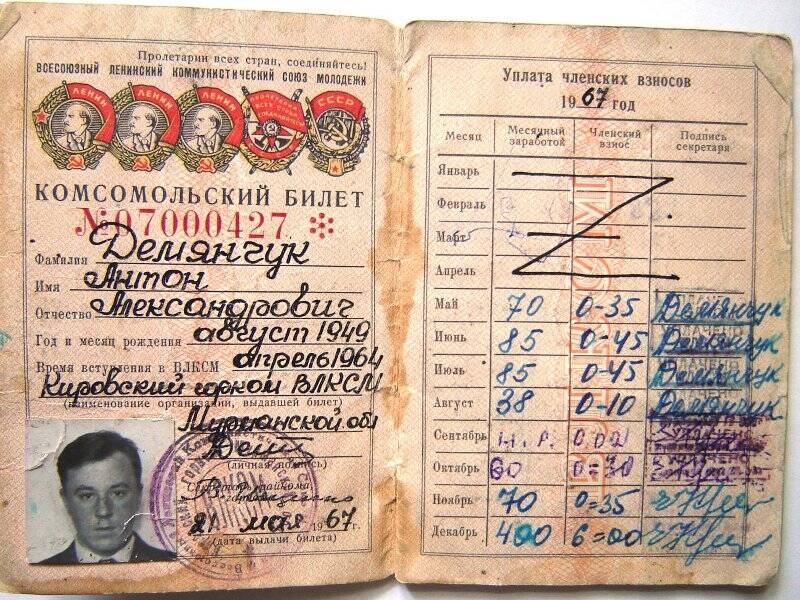 Пролетарии всех стран, соединяйтесь!
ВСЕСОЮЗНЫЙ ЛЕНИНСКИЙ КОММУНИСТИЧЕСКИЙ СОЮЗ МОЛОДЕЖИ
ЛЕНИН ЛЕНИН ЛЕНИН СССР
КОМСОМОЛЬСКИЙ БИЛЕТ
№07000427
Фамилия Демянчук
Имя Антон
Отчество Александрович
Год и месяц рождения август 1949
Время вступления в ВЛКСМ апрель 1964
Кировский горком ВЛКСМ
(наименование организации, выдавшей билет)
Мурманской обл
Дем
(личная подпись)
Секретарь райкома
21 мая 1967 г.
(дата выдачи билета)
Уплата членских взносов
1967 год
Месяц Месячный заработок Членский взнос Подпись секретаря
Январь
Февраль
Март
Апрель
Май 70 0-35 Демянчук
Июнь 85 0-45 Демянчук
Июль 85 0-45 Демянчук
Август 38 0-10 Демянчук
Сентябрь Н.Р.
Октябрь 60 0=30
Ноябрь 70 0=35
Декабрь 400 6=00